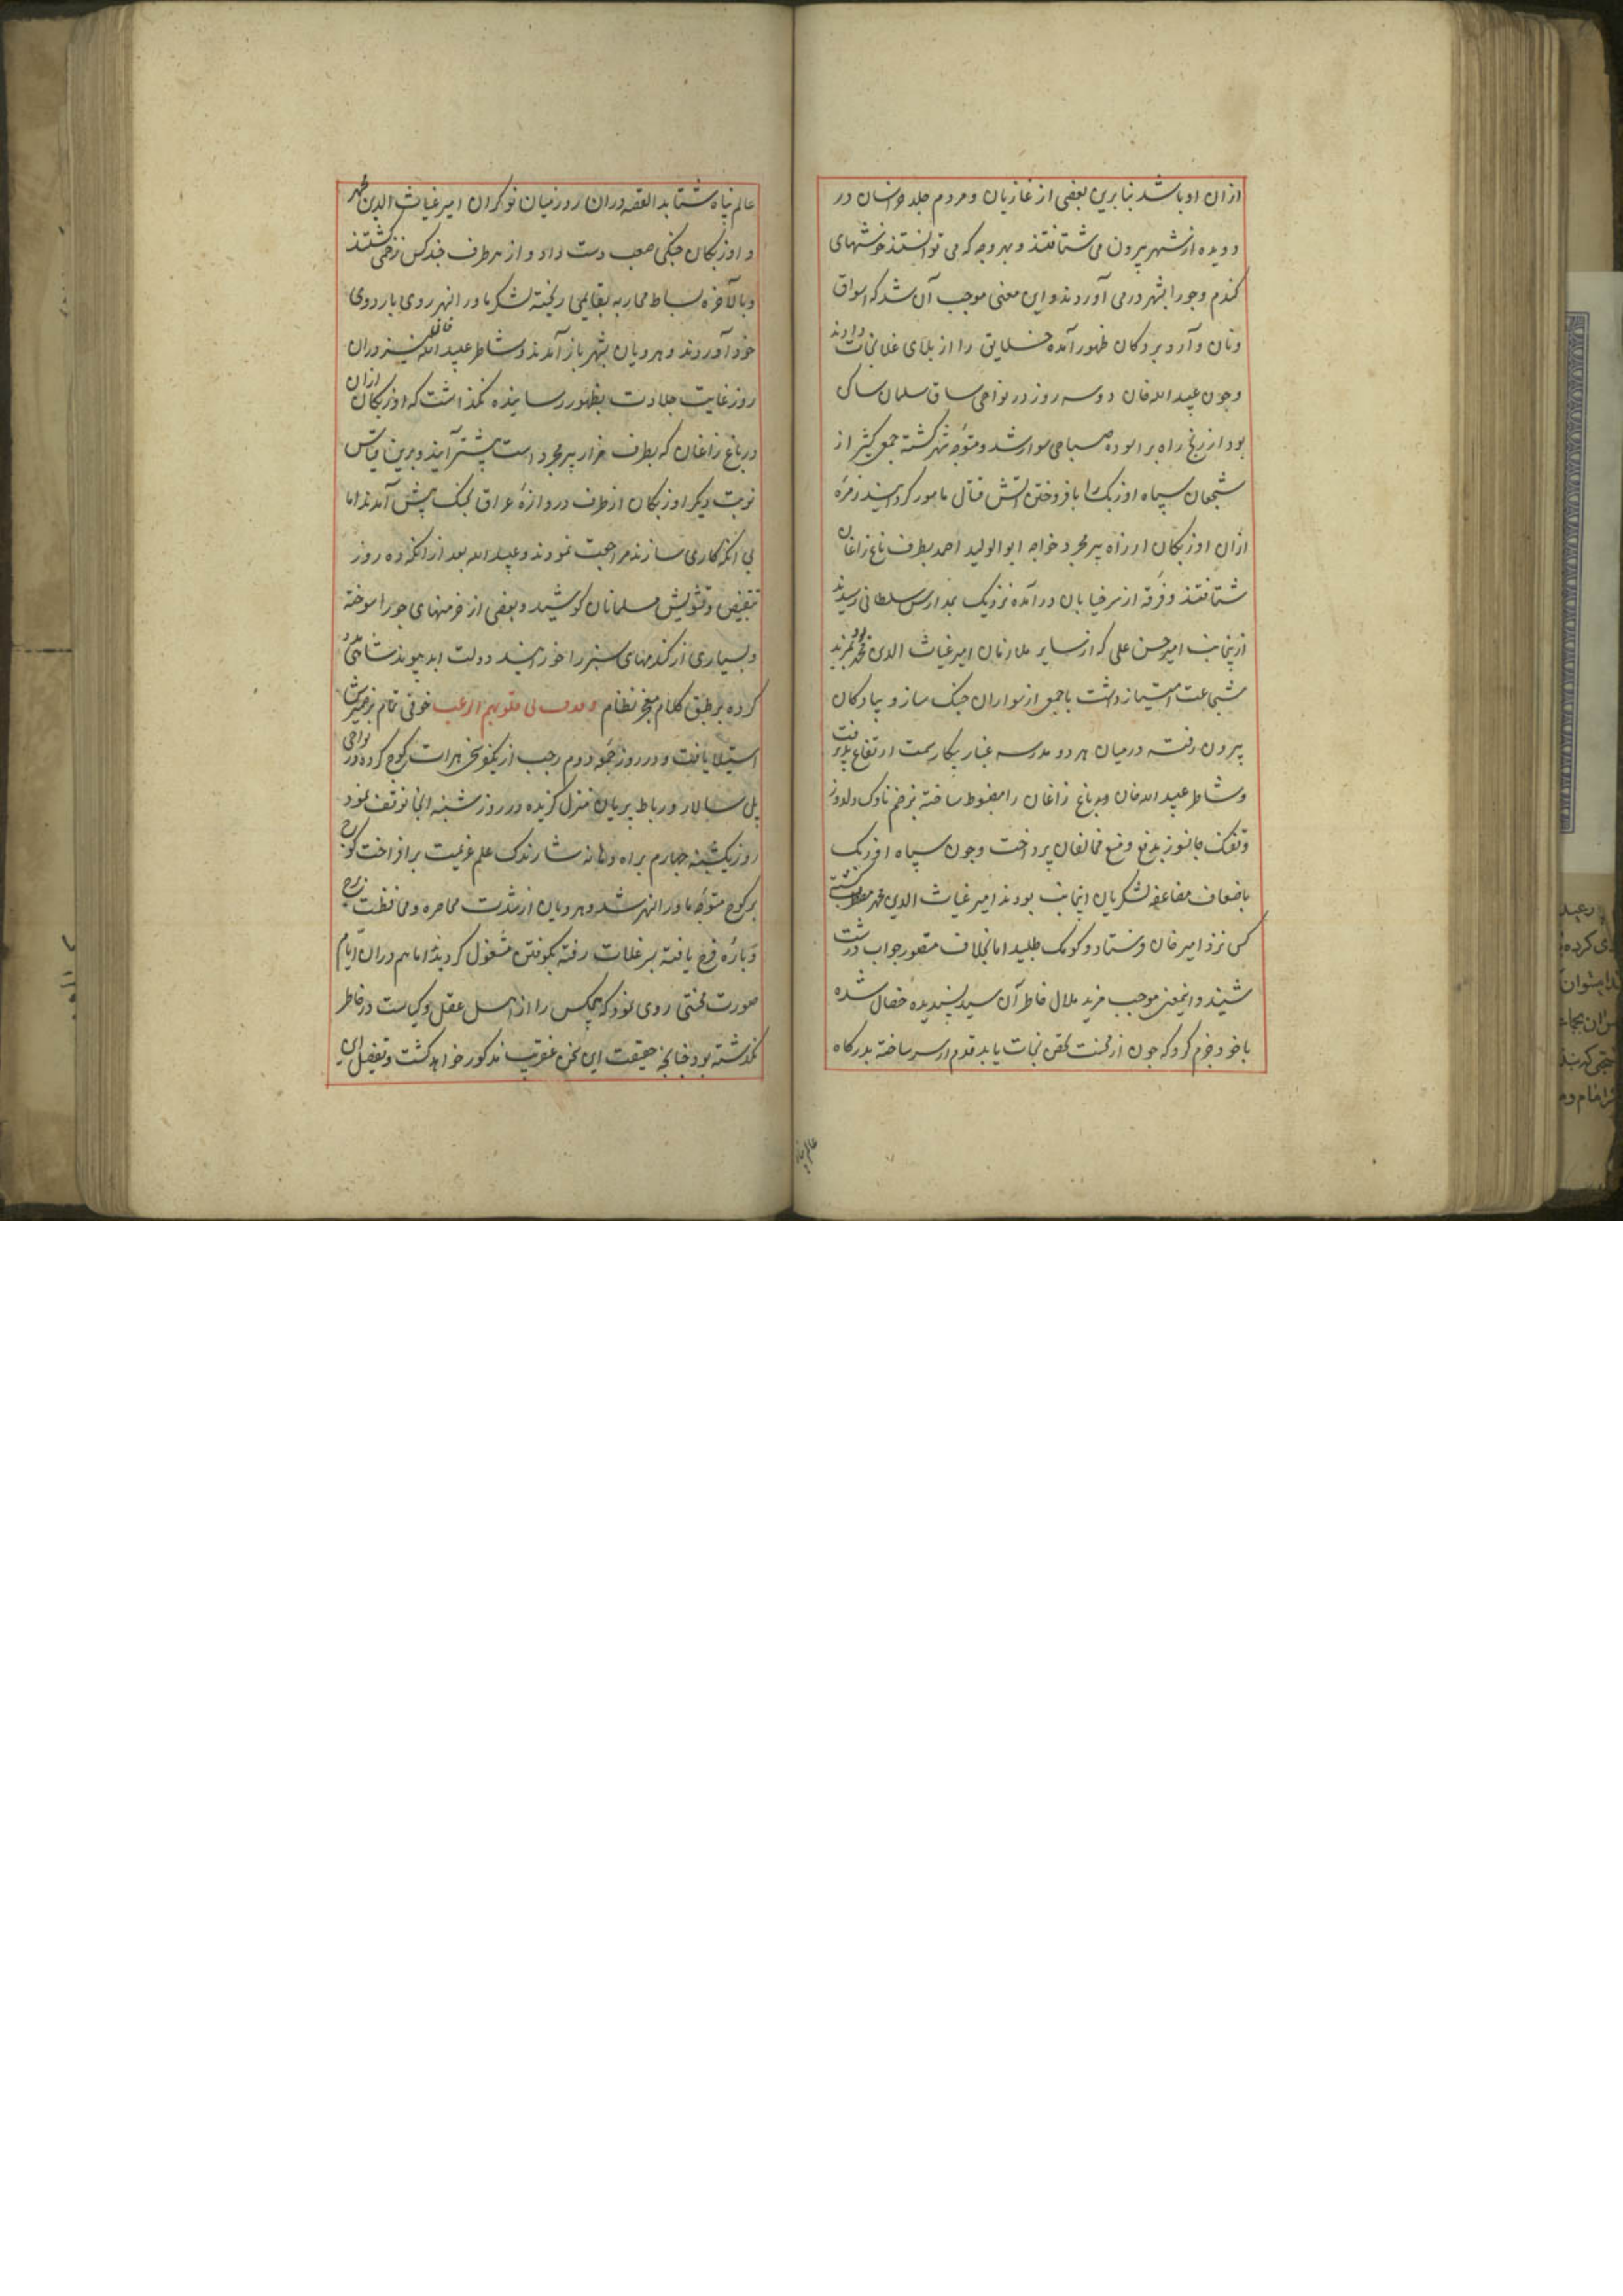 ازان او باشد بنابرین بعضی از غازیان و مردم جلد خراسان در
دویده از شهر بیرون می شتافتند و بهر وجه که می توانستند خوشهای
کندم و جو را بشهر درمی آوردند و این معنی موجب آن شد که اسواق
ونان و آرد بر دکان ظهور آمده خلایق را از بلای غلا نجات دادند
و چون عبیدالله خان دو سه روز در نواحی ساق سلمان ساکن
بود از رنج راه بر آسوده صباحی سوار شد و متوجه شهر کشته جمعی کثیر از
شجعان سپاه اوزبک را بافروختن آتش قتال مامور کردانید زمره
ازان اوزبکان از راه پیر مجرد خواجه ابوالولید احمد بطرف باغ زاغان
شتافتند و فرقه از سر خیابان درآمده نزدیک بمدارس سلطانی رسیدند
ازینجانب امیر حسن علی که از سایر ملازمان امیر غیاث الدین محمد بمزید
شجاعت امتیاز داشت با جمعی از سواران جنک ساز و پیادکان
بیرون رفته درمیان هر دو مدرسه غبار پیکار سمت ارتفاع پذیرفت
و شاطر عبیدالله خان باغ زاغان را مضبوط ساخته بزخم ناوک دلدوز
و تفنک جانسوز بدفع و منع مخالفان پرداخت و چون سپاه اوزبک
باضعاف مضاعفه لشکریان اینجانب بودند امیر غیاث الدین محمد
کس نزد امیر خان فرستاد و کومک طلبید اما بخلاف متصور جواب درشت
شنید و اینمعنی موجب مزید ملال خاطر آن سید پسندیده خصال شده
با خود جزم کرد که چون از محنت تحصن نجات یابد قدم از سر ساخته بدرکاه
عالم پناه
عالم پناه شتابد القصه دران روز میان نوکران امیر غیاث الدین محمد
و اوزبکان جنکی صعب دست داد و از هر طرف چند کس زخمی کشتند
و بالاخره بساط محاربه بقایمی ریخته لشکر ماوراءالنهر روی باردوی
خود آوردند و هرویان بشهر باز آمدند و شاطر عبیدالله نیز دران
روز غایت جلادت بظهور رسانیده نکذاشت که اوزبکان ازان
در باغ زاغان که بطرف مزار پیر مجرد است پیشتر آیند و برین قیاس
نوبت دیکر اوزبکان از طرف دروازه عراق بجنک پیش آمدند اما
بی انکه کاری سازند مراجعت نمودند و عبیدالله بعد از انکه ده روز
بتنغیص و تشویش مسلمانان کوشید و بعضی از خرمنهای جو را سوخته
و بسیاری از کندمهای سبز را خورانید دولت ابد پیوند شاهی
کرده بر طبق کلام معجز نظام و قذف فی قلوبهم الرعب خوفی تمام بر ضمیرش
استیلا یافت و در روز جمعه دوم رجب از یکفرسخی هرات کوچ کرده در نواحی
پل سالار و رباط پریان منزل کزیده در روز شنبه انجا توقف نمود
روز یکشنبه چهارم براه علم عزیمت برافراخت کوچ
بر کوچ متوجه ماوراءالنهر شد و هرویان از شدت محاصره و محافظت برج
و باره فرج یافته بسر غلات رفته بکوفتن مشغول کردیدند اما هم دران ایام
صورت محنتی روی نمود که هیچکس را از اهل عقل و کیاست در خاطر
نکذشته بود چنانچه حقیقت این سخن عنقریب مذکور خواهد کشت و تفصیل این